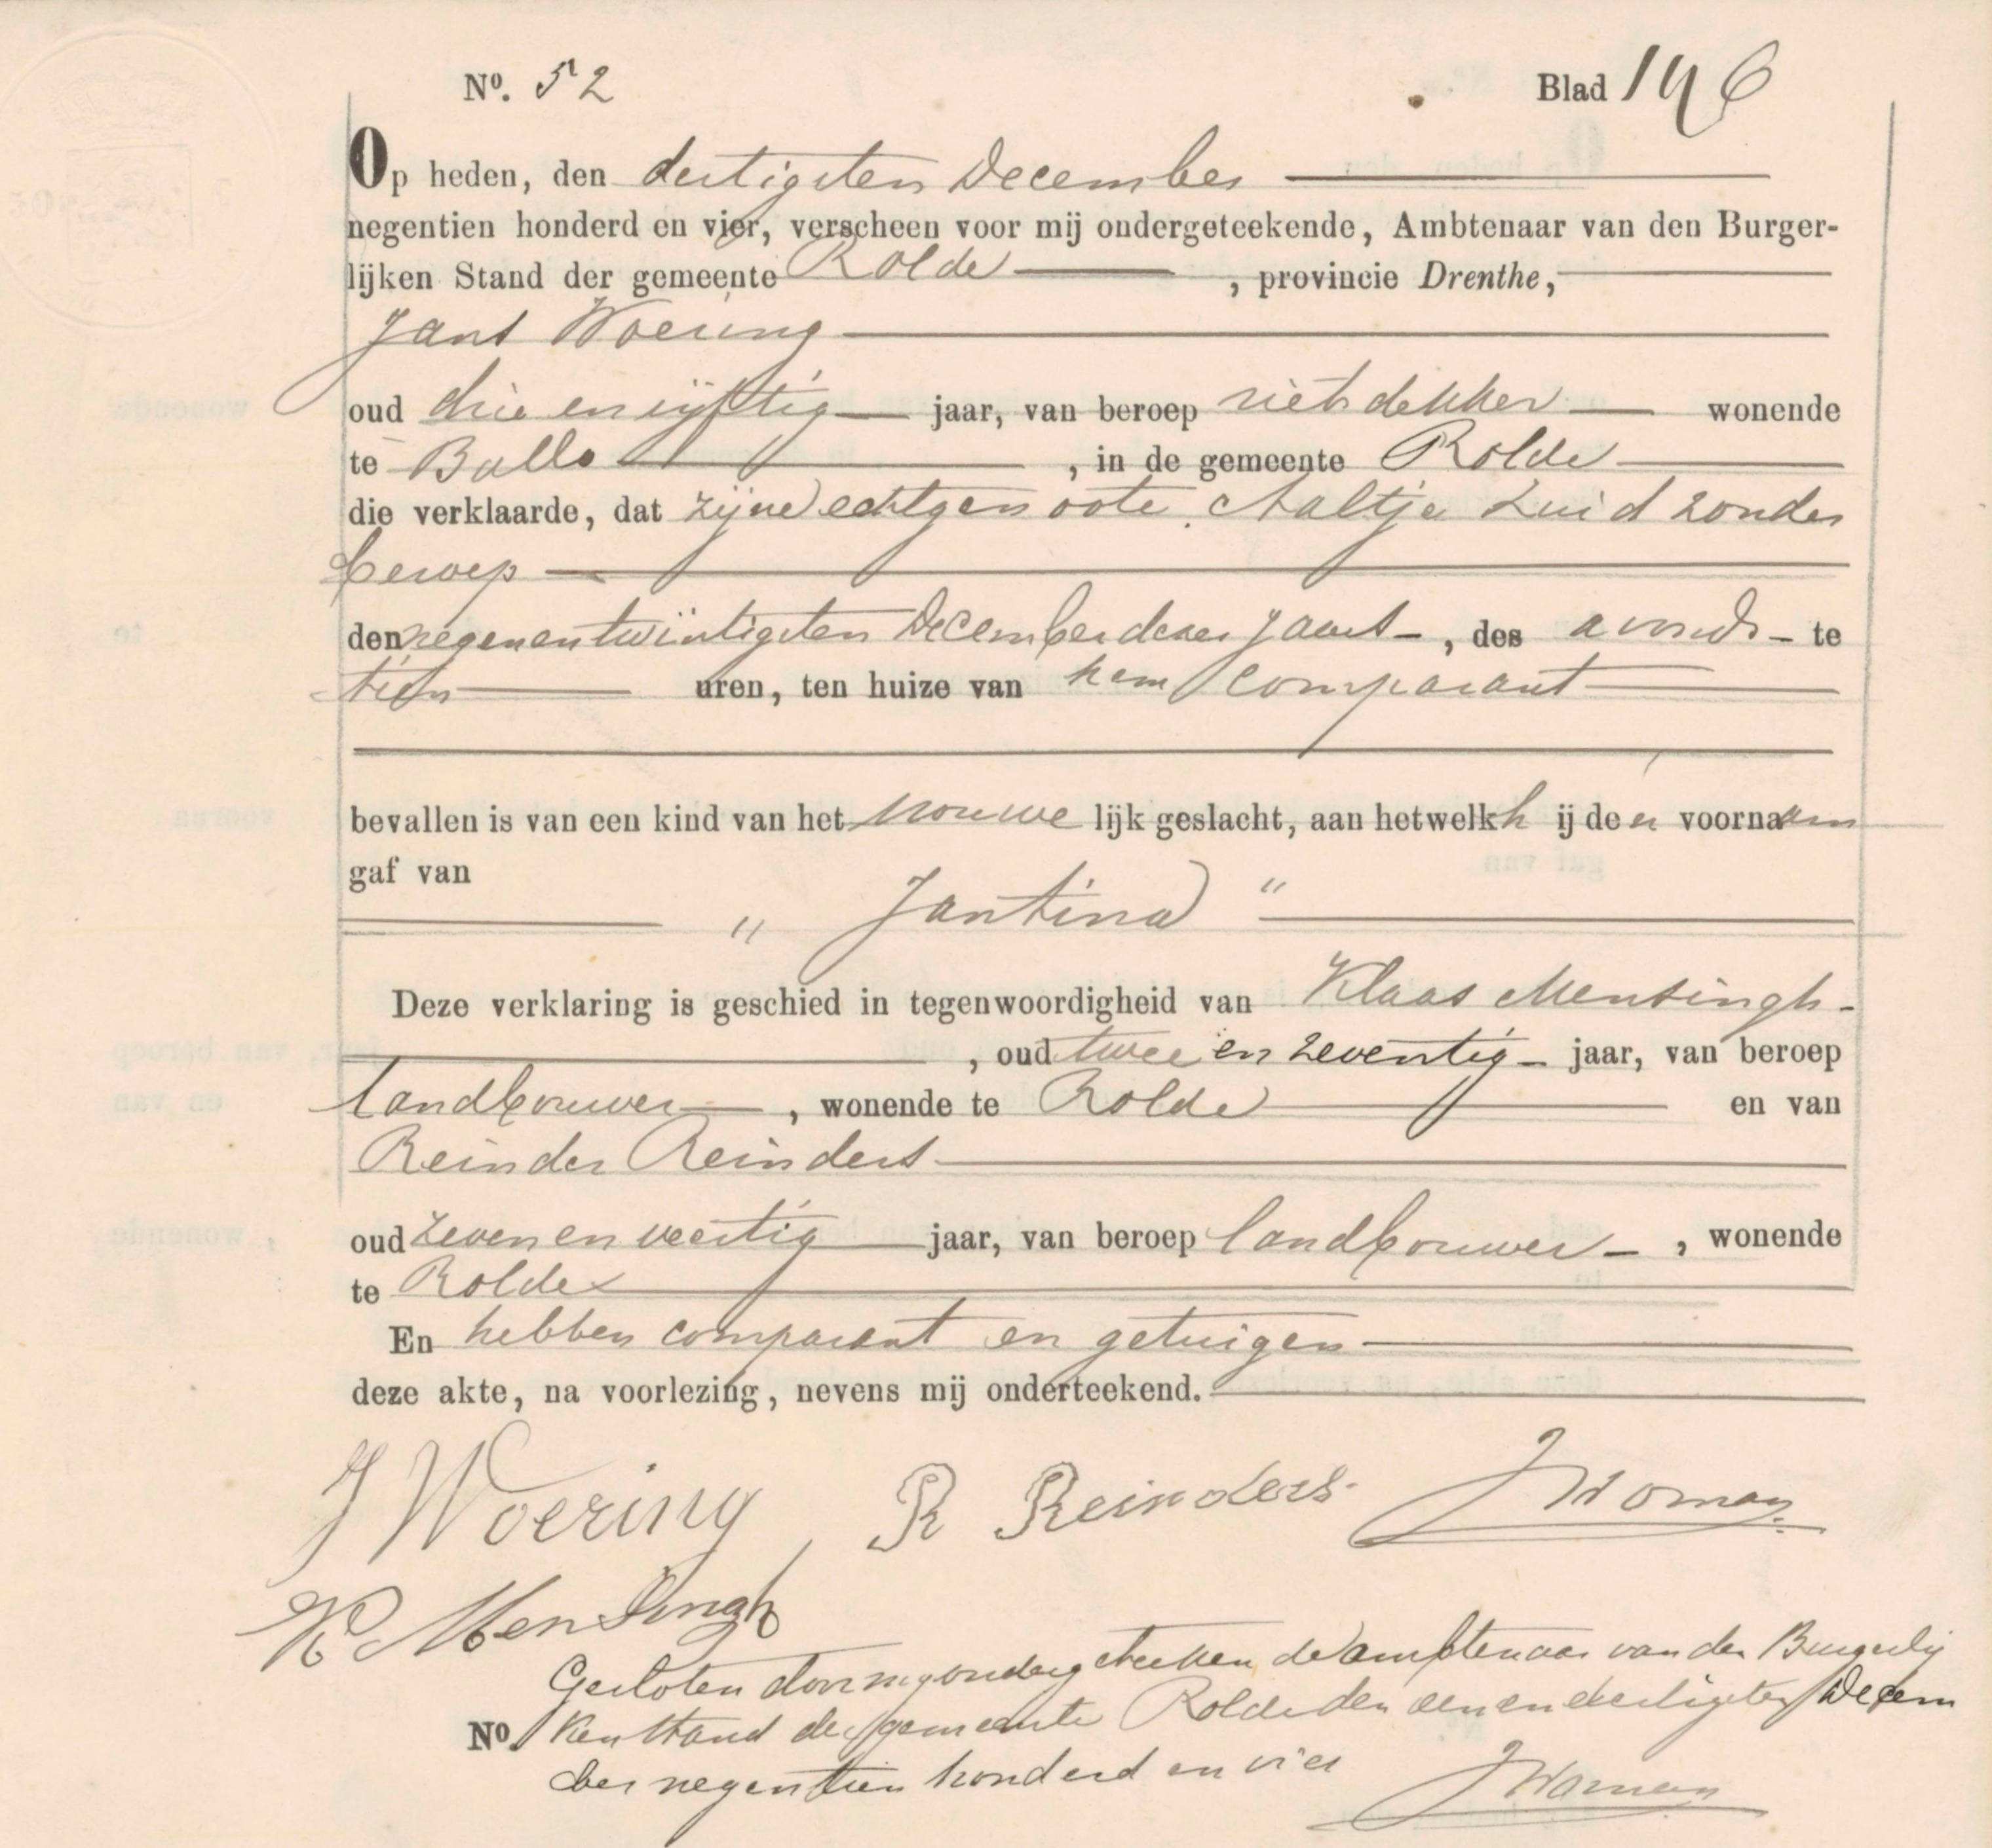 No. 52 Blad 146
Op heden, den dertigsten December
negentien honderd en vier, verscheen voor mij ondergeteekende, Ambtenaar van den Burger-
lijken Stand der gemeente Rolde, provincie Drenthe,
Jans Woering
oud drie en vijftig jaar, van beroep rietdekker wonende
te Ballo, in de gemeente Rolde
die verklaarde, dat zijne echtgenoote Aaltje Luid zonder
beroep
den negenentwintigsten December dezes jaars, des avonds te
tien uren, ten huize van hem comparant
bevallen is van een kind van het vrouwelijk geslacht, aan hetwelk hij den voornaam
gaf van
" Jantina "
Deze verklaring is geschied in tegenwoordigheid van Klaas Mensingh
, oud twee en zeventig jaar, van beroep
landbouwer, wonende te Rolde en van
Reinder Reinders
oud zeven en veertig jaar, van beroep landbouwer, wonende
te Rolde
En hebben comparant en getuigen
deze akte, na voorlezing, nevens mij onderteekend.
J Woering R Reinders
K Mensingh
Gesloten door mij ondergeteekende ambtenaar van den Burgerlij
No. ken Stand der gemeente Rolde den eenendertigsten Decem
ber negentien honderd en vier